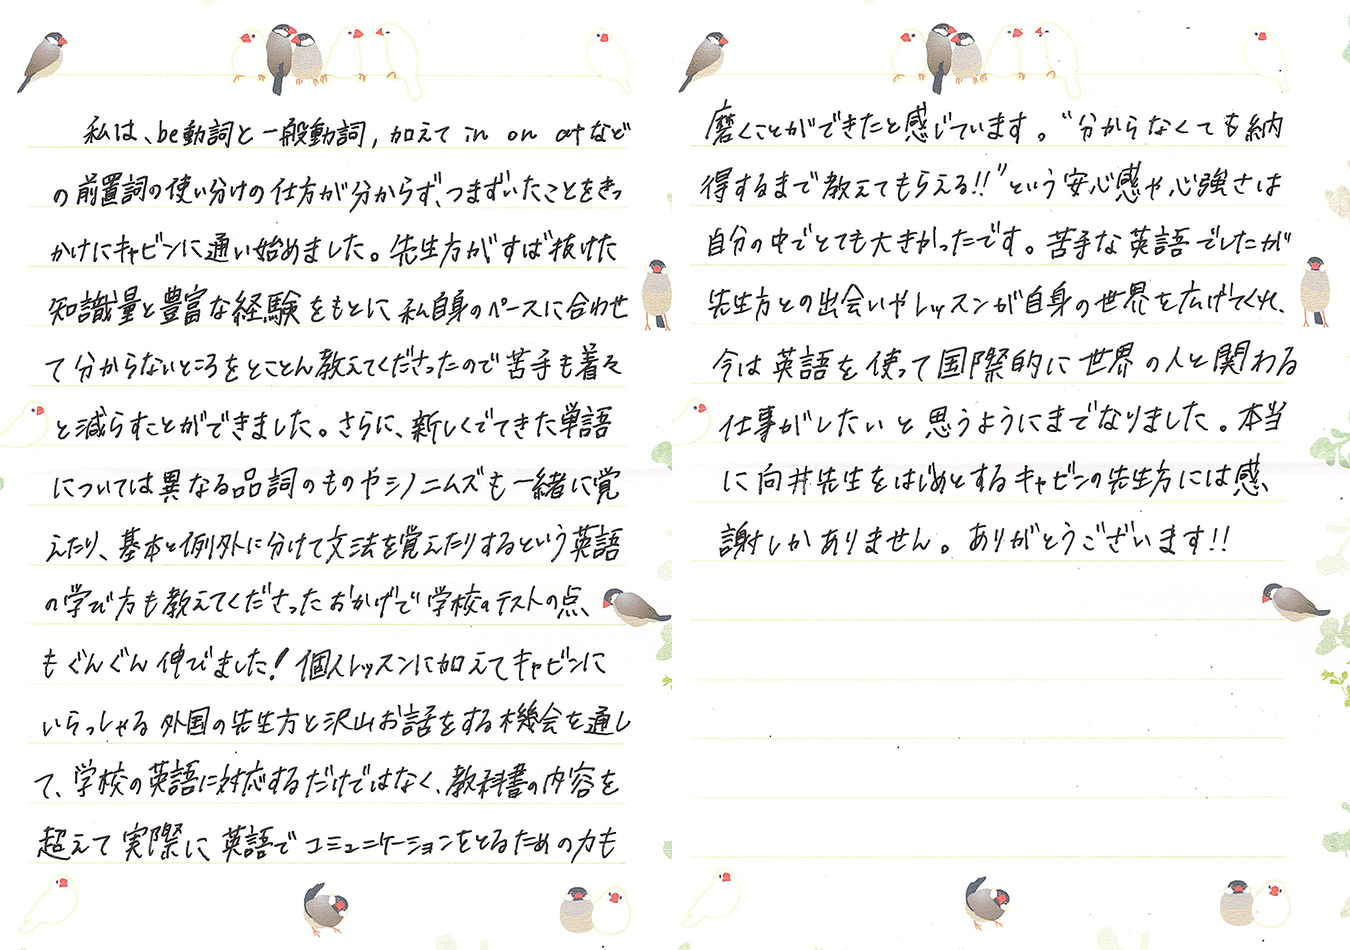 私は、be動詞と一般動詞，加えて in on atなど
の前置詞の使い分けの仕方が分からず、つまずいたことをきっ
かけにキャビンに通い始めました。先生方がずば抜けた
知識量と豊富な経験をもとに私自身のペースに合わせ
て分からないところをとことん教えてくださったので苦手も着々
と減らすことができました。さらに、新しくでてきた単語
については異なる品詞のものやシノニムズも一緒に覚
えたり、基本と例外に分けて文法を覚えたりするという英語
の学び方も教えてくださったおかげで学校のテストの点、
もぐんぐん伸びました！個人レッスンに加えてキャビンに
いらっしゃる外国の先生方と沢山お話をする機会を通し
て、学校の英語に対応するだけではなく、教科書の内容を
超えて実際に英語でコミュニケーションをとるための力も
磨くことができたと感じています。“分からなくても納
得するまで教えてもらえる!!”という安心感や心強さは
自分の中でとても大きかったです。苦手な英語でしたが
先生方との出会いやレッスンが自身の世界を広げてくれ、
今は英語を使って国際的に世界の人と関わる
仕事がしたいと思うようにまでなりました。本当
に向井先生をはじめとするキャビンの先生方には感、
謝しかありません。ありがとうございます!!